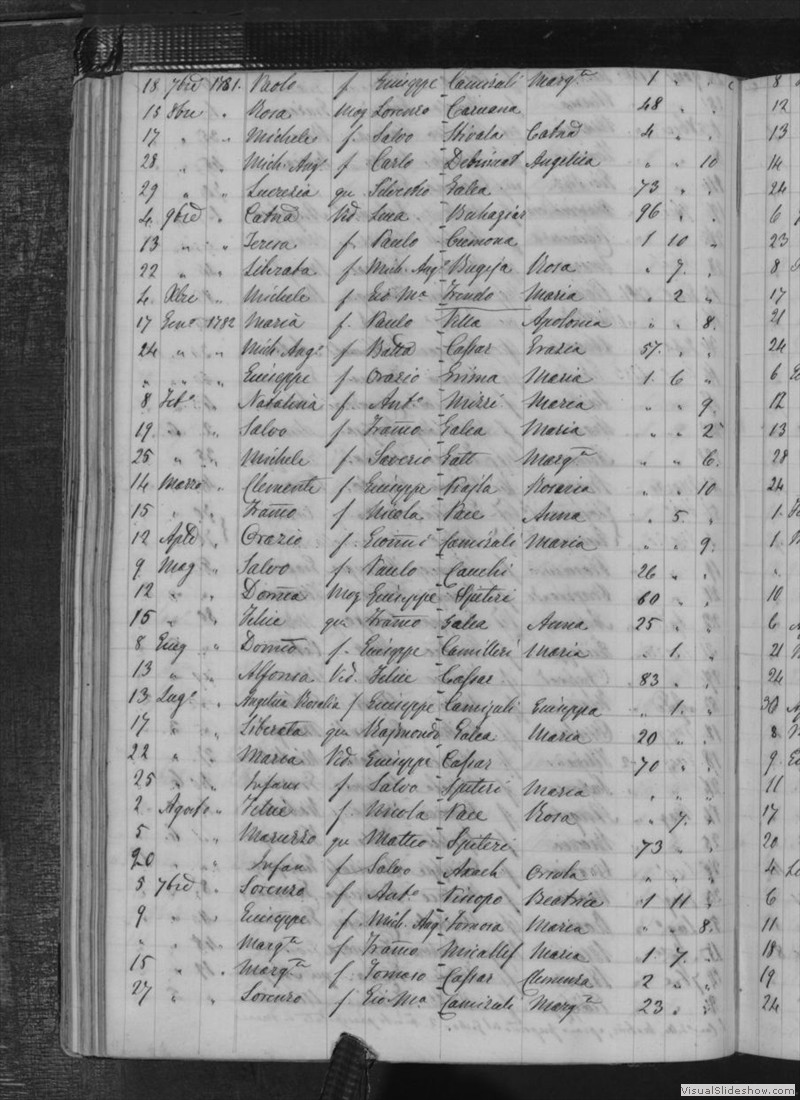 18 7bre 1781. Paolo f Giuseppe Camizuli Margta 1 " "
15 8bre " Rosa Mog Lorenzo Caruana 48 " "
17 " " Michele f. Salvo Stivala Catnã 4 " "
28 " " Mich. Angº f Carlo Angelica " " 10
29 " " Lucrezia qu Silvestro Galea 73 " "
4 9bre " Catnã Vid Luca Buhagiar 96 " "
13 " " Teresa f Paulo Cremona 1 10 "
22 " " Liberata f Mich. Angº Bugeja Rosa " 7. "
4 Xbre " Michele f Gio Mª Maria " 2 "
17 Genº 1782 Maria f Paulo Vella Apolonia " " 8.
24 " " Mich Angº f Batta Cassar Grazia 57. " "
" " " Giuseppe f Orazio Grima Maria 1. 6 "
8 Febº " Natalizia f. Antº Mizzi Marea " " 9
19. " " Salvo f. Franco Galea Maria " " 2
25 " " Michele f. Saverio Gatt Margta " " 6.
14 Marzo " Clemente f Giuseppe Rosaria " " 10
15 " " Franco f Nicola Pace Anna " 5. "
12 Aple " Orazio f. Gionni Camizuli Maria " " 9.
9 Mag " Salvo f Paulo Cauchi 26 " "
12 " " Domca Mog Giuseppe Spiteri 60 " "
15 " " Felice qu Franco Galea Anna 25 " "
8 Giug " Domco f. Giuseppe Camilleri Maria " 1. "
13 " " Alfonsa Vid. Felice Cassar 83 " "
13 Lugº " Angelica Rosalia f Giuseppe Camizuli Giuseppa " 1. "
17 " " Liberata qu Raymondo Galea Maria 20 " "
22 " " Maria Vid Giuseppe Cassar 70 " "
25 " " Infans f Salvo Spiteri Maria " " "
2 Agosto " Felice f Nicola Pace Rosa " 7. "
5 " " Maruzzo qu Matteo Spiteri 73 " "
20 " " Infan f Salvo Axach Orsola " " "
5 7bre " Lorenzo f Antº Beatrice 1 11 "
9 " " Giuseppe f Mich. Angº Maria " " 8.
" " " Margta f Franco Micallef Maria 1 7. "
15 " " Margta f. Tomaso Cassar Clemenza 2 " "
27 " " Lorenzo f Gio Mª Camizuli Margta 23 " "
8
12
13
14
24
6
23
8
17
21
24
6
12
13
28
24
1
1
10
6
21
24
30
8
9
11
17
20
4
6
11
18
19
24
VisualSlideshow.com